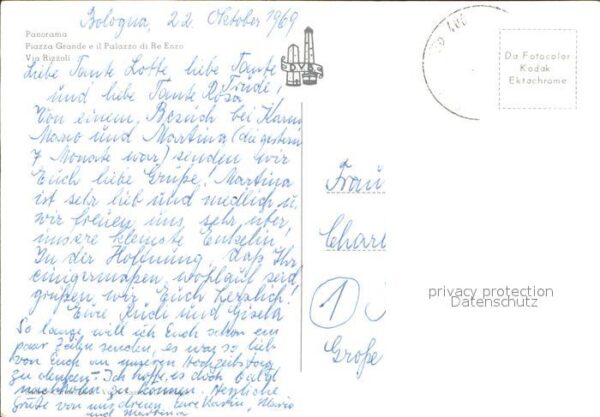 Bologna, 22. Oktober 1969
Panorama
Piazza Grande e il Palazzo di Re Enzo
Via Rizzoli
DVB
Liebe Tante Lotte liebe Tante
Trude,
und liebe Tante Rosa
Von einem Besuch bei Karin
Mario und Martina (die gestern
7 Monate war) senden wir
Euch liebe Grüße! Martina
ist sehr lieb und niedlich u.
wir freuen uns sehr über
unsere kleinste Enkelin.
In der Hoffnung, daß Ihr
einigermaßen wohlauf seid
grüßen wir Euch herzlich!
Eure Rudi und Gisela
So lange will ich Euch schon ein
paar Zeilen senden, es war so lieb
von Euch an unseren Hochzeitstag
zu denken – Ich hoffe es doch bald
nachholen zu können. Herzliche
Grüße von uns dreien, Eure Karin, Mario
und Martina
Da Fotocolor
Kodak
Ektachrome
Frau
Charl
1
Große
privacy protection
Datenschutz